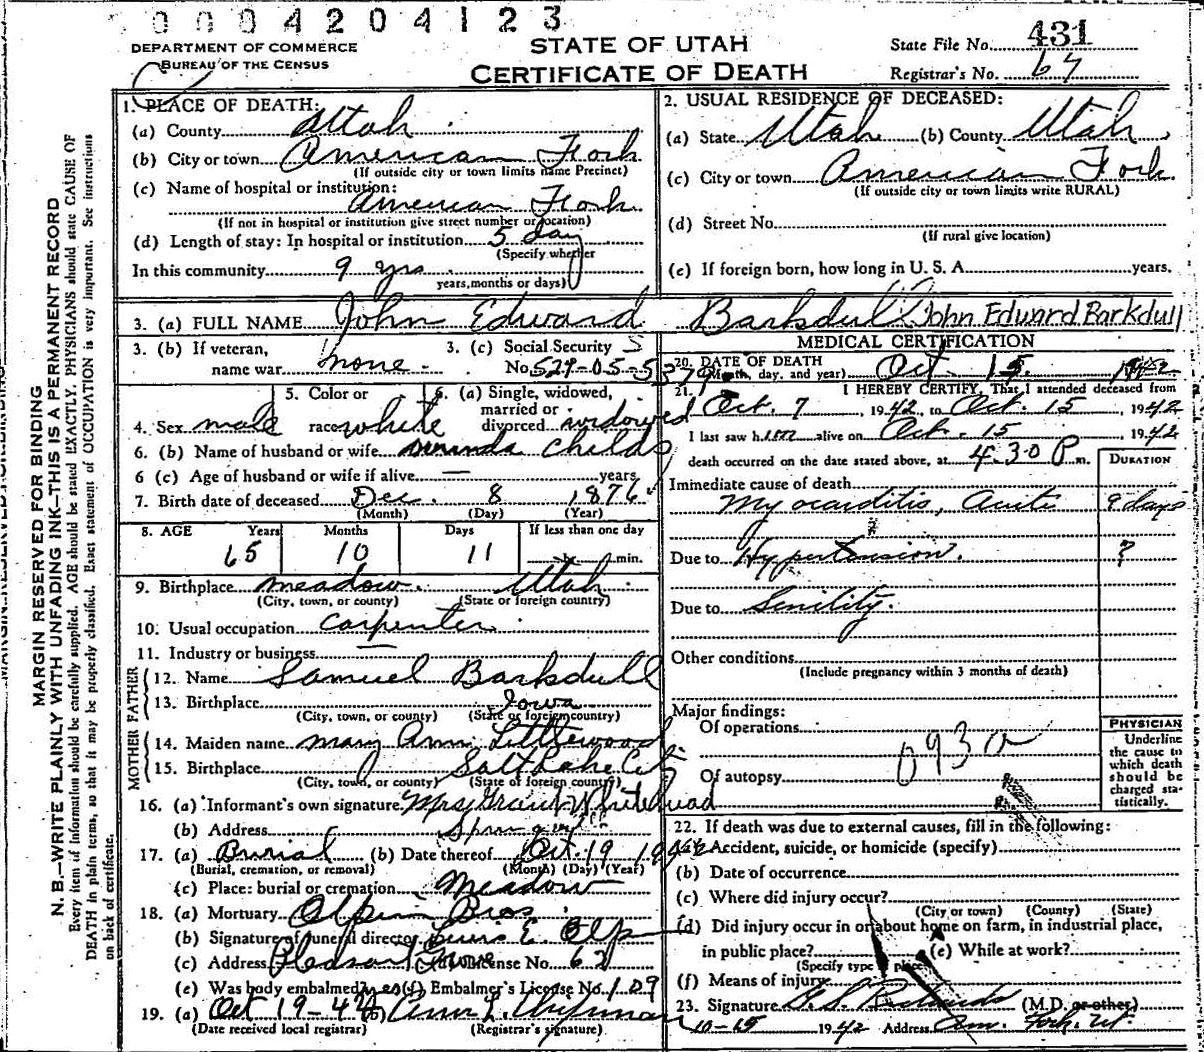 0004204123
DEPARTMENT OF COMMERCE
BUREAU OF THE CENSUS
STATE OF UTAH
CERTIFICATE OF DEATH
State File No. 431
Registrar's No. 67
MARGIN RESERVED FOR BINDING
N. B.—WRITE PLAINLY WITH UNFADING INK—THIS IS A PERMANENT RECORD
Every item of information should be carefully supplied. AGE should be stated EXACTLY. PHYSICIANS should state CAUSE OF
DEATH in plain terms, so that it may be properly classified. Exact statement of OCCUPATION is very important. See instructions
on back of certificate.
1. PLACE OF DEATH:
(a) County Utah
(b) City or town American Fork
(If outside city or town limits name Precinct)
(c) Name of hospital or institution:
American Fork
(If not in hospital or institution give street number or location)
(d) Length of stay: In hospital or institution 5 day
(Specify whether
In this community 9 yrs.
years, months or days)
2. USUAL RESIDENCE OF DECEASED:
(a) State Utah (b) County Utah
(c) City or town American Fork
(If outside city or town limits write RURAL)
(d) Street No.
(If rural give location)
(e) If foreign born, how long in U. S. A. years.
3. (a) FULL NAME John Edward Barkdull (John Edward Barkdull
3. (b) If veteran,
name war none
3. (c) Social Security
No. 529-05-5379
4. Sex male
5. Color or
race white
6. (a) Single, widowed,
married or
divorced widowed
6. (b) Name of husband or wife Childs
6 (c) Age of husband or wife if alive — years
7. Birth date of deceased Dec. 8 1876
(Month) (Day) (Year)
8. AGE Years Months Days If less than one day
65 10 11 min.
9. Birthplace Meadow. Utah
(City, town, or county) (State or foreign country)
10. Usual occupation Carpenter
11. Industry or business —
FATHER
12. Name Samuel Barkdull
13. Birthplace Iowa
(City, town, or county) (State or foreign country)
MOTHER
14. Maiden name Mary Ann Littlewood
15. Birthplace Salt Lake City
(City, town, or county) (State of foreign country)
16. (a) Informant's own signature Mrs Grant Whitehead
(b) Address
17. (a) Burial (b) Date thereof Oct. 19 1942
(Burial, cremation, or removal) (Month) (Day) (Year)
(c) Place: burial or cremation Meadow
18. (a) Mortuary Olpin Bros.
(b) Signature of funeral director E. Olpin
(c) Address Pleasant Grove License No. 62
(e) Was body embalmed? yes (f) Embalmer's License No. 109
19. (a) Oct 19-42 (b)
(Date received local registrar) (Registrar's signature)
MEDICAL CERTIFICATION
20. DATE OF DEATH
(Month, day, and year) Oct 15 1942
21. I HEREBY CERTIFY, That I attended deceased from
Oct. 7, 1942, to Oct. 15, 1942
I last saw him alive on Oct. 15 1942
death occurred on the date stated above, at 4:30 P m.
DURATION
Immediate cause of death
Myocarditis, Acute 9 days
Due to Hypertension. ?
Due to Senility.
Other conditions
(Include pregnancy within 3 months of death)
Major findings:
Of operations
Of autopsy
093a
PHYSICIAN
Underline
the cause to
which death
should be
charged sta-
tistically.
22. If death was due to external causes, fill in the following:
(a) Accident, suicide, or homicide (specify)
(b) Date of occurrence
(c) Where did injury occur?
(City or town) (County) (State)
(d) Did injury occur in or about home on farm, in industrial place,
in public place? (e) While at work?
(Specify type of place)
(f) Means of injury
23. Signature (M.D. or other)
10-15 1942 Address Am. Fork. Ut.